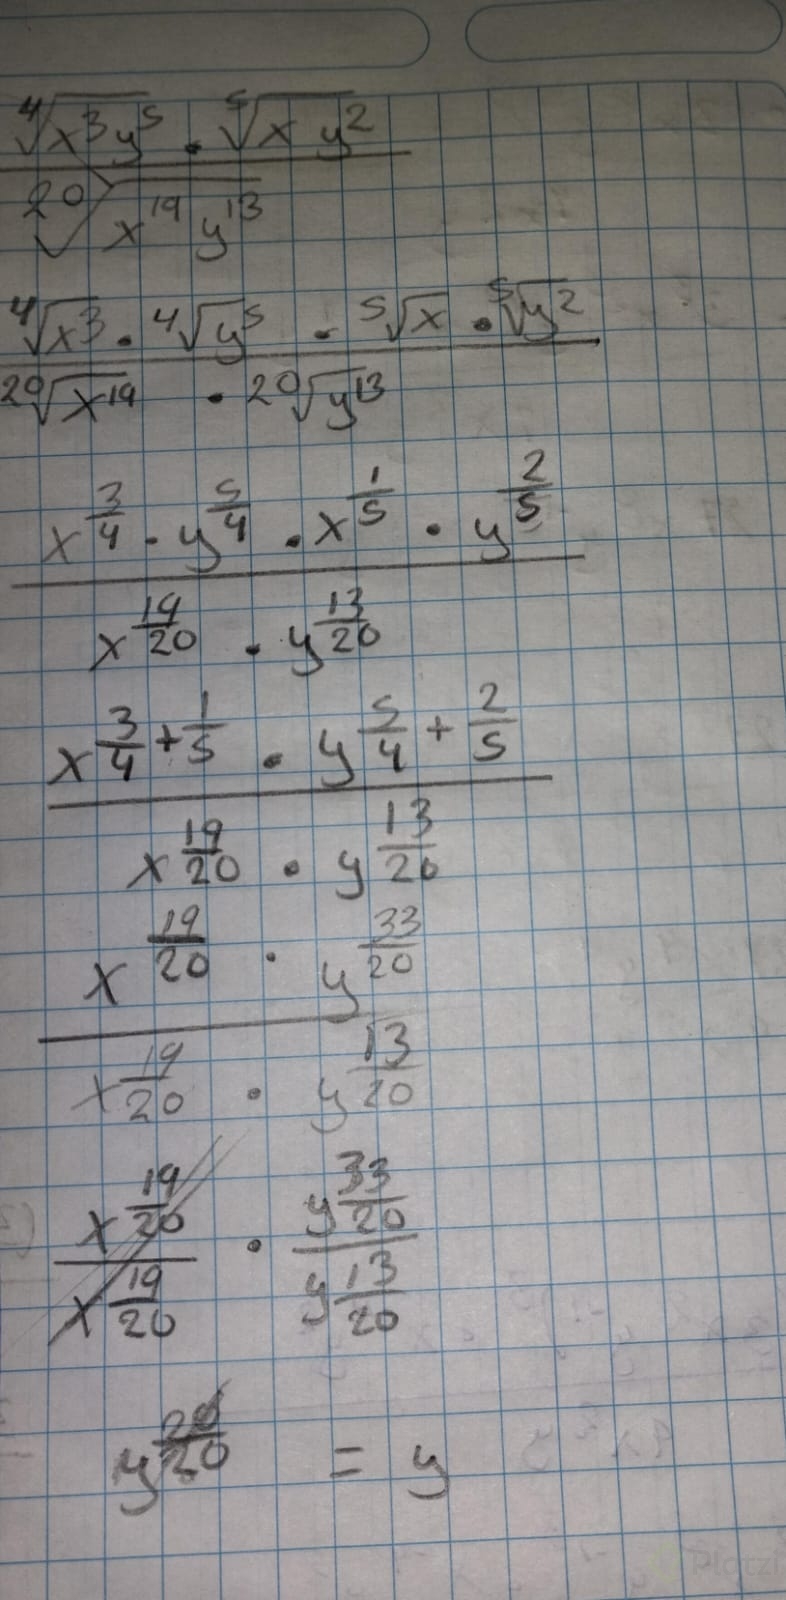 ⁴√x³y⁵ · ⁵√x y²
²⁰√x¹⁹ y¹³
⁴√x³ · ⁴√y⁵ · ⁵√x · ⁵√y²
²⁰√x¹⁹ · ²⁰√y¹³
x^3/4 · y^5/4 · x^1/5 · y^2/5
x^19/20 · y^13/20
x^3/4+1/5 · y^5/4+2/5
x^19/20 · y^13/20
x^19/20 · y^33/20
x^19/20 · y^13/20
x^19/20 · y^33/20
x^19/20 y^13/20
y^20/20 = y
Platzi